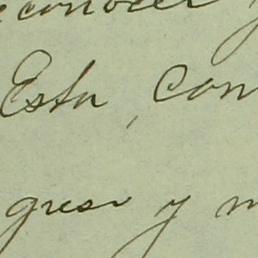 econocer y
Esta, con
greso y m